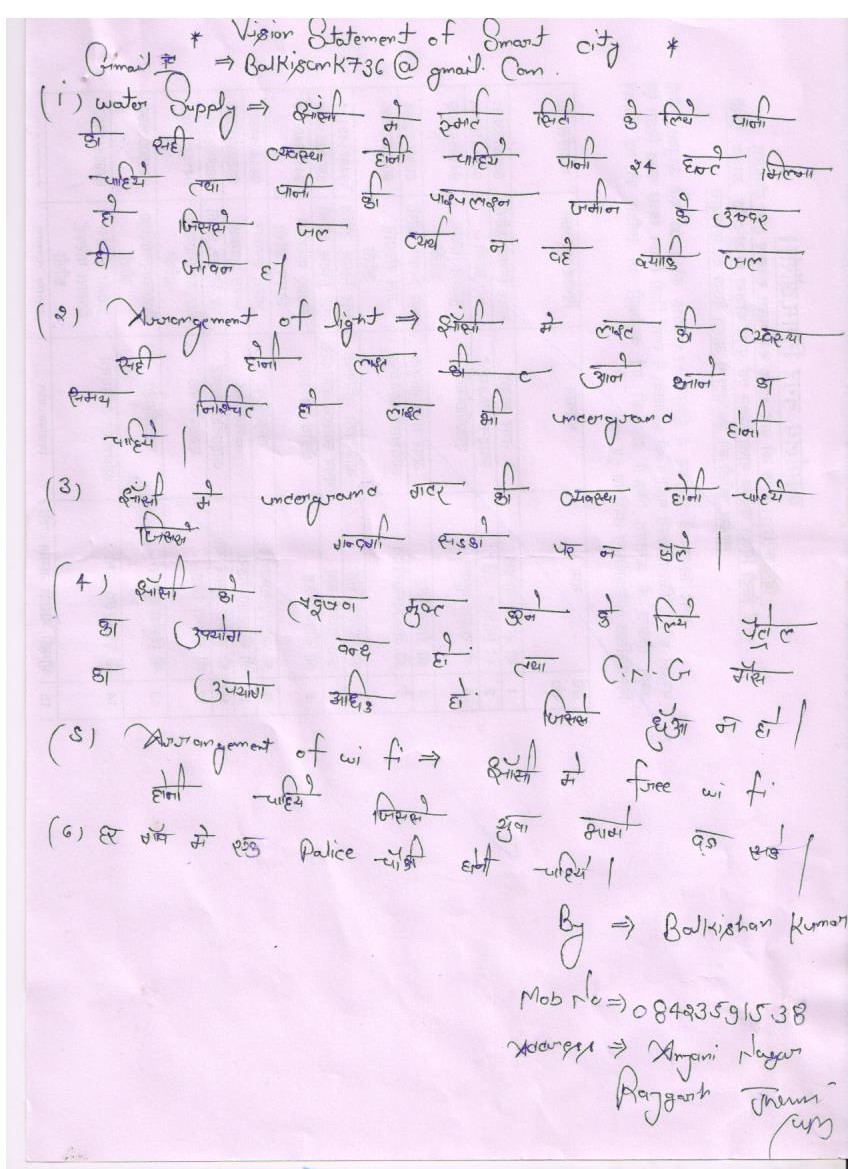 * Vision Statement of Smart city *
Gmail ⇒ BalKisanK736@gmail.Com
(1) Water Supply ⇒ झाँसी मे स्मार्ट सिटी के लिये पानी
की सही व्यवस्था होनी चाहिये पानी २4 घन्टे मिलना
चाहिये तथा पानी की पाइपलाइन जमीन के अन्दर
हो जिससे जल व्यर्थ न वहे क्योकि जल
ही जीवन है।
(२) Arrangement of light ⇒ झाँसी मे लाइट की व्यवस्था
सही होनी लाइट की आने जाने का
समय निश्चित हो लाइट भी underground होनी
चाहिये।
(3) झाँसी मे underground गटर की व्यवस्था होनी चाहिये
जिससे गन्दगी सड़को पर न फैले।
(4) झाँसी को प्रदूषण मुक्त करने के लिये पैट्रोल
का उपयोग वन्द हो तथा C.N.G गैस
का उपयोग अधिक हो जिससे धुँआ न हो।
(5) Arrangement of wi fi ⇒ झाँसी मे free wi fi
होनी चाहिये जिससे युवा आगे वड़ सके।
(6) हर गाँव मे एक Police चौकी होनी चाहिये।
By ⇒ Balkishan Kumar
Mob No ⇒ 08423591538
Address ⇒ Anjani Nagar
Rajgarh Jhansi